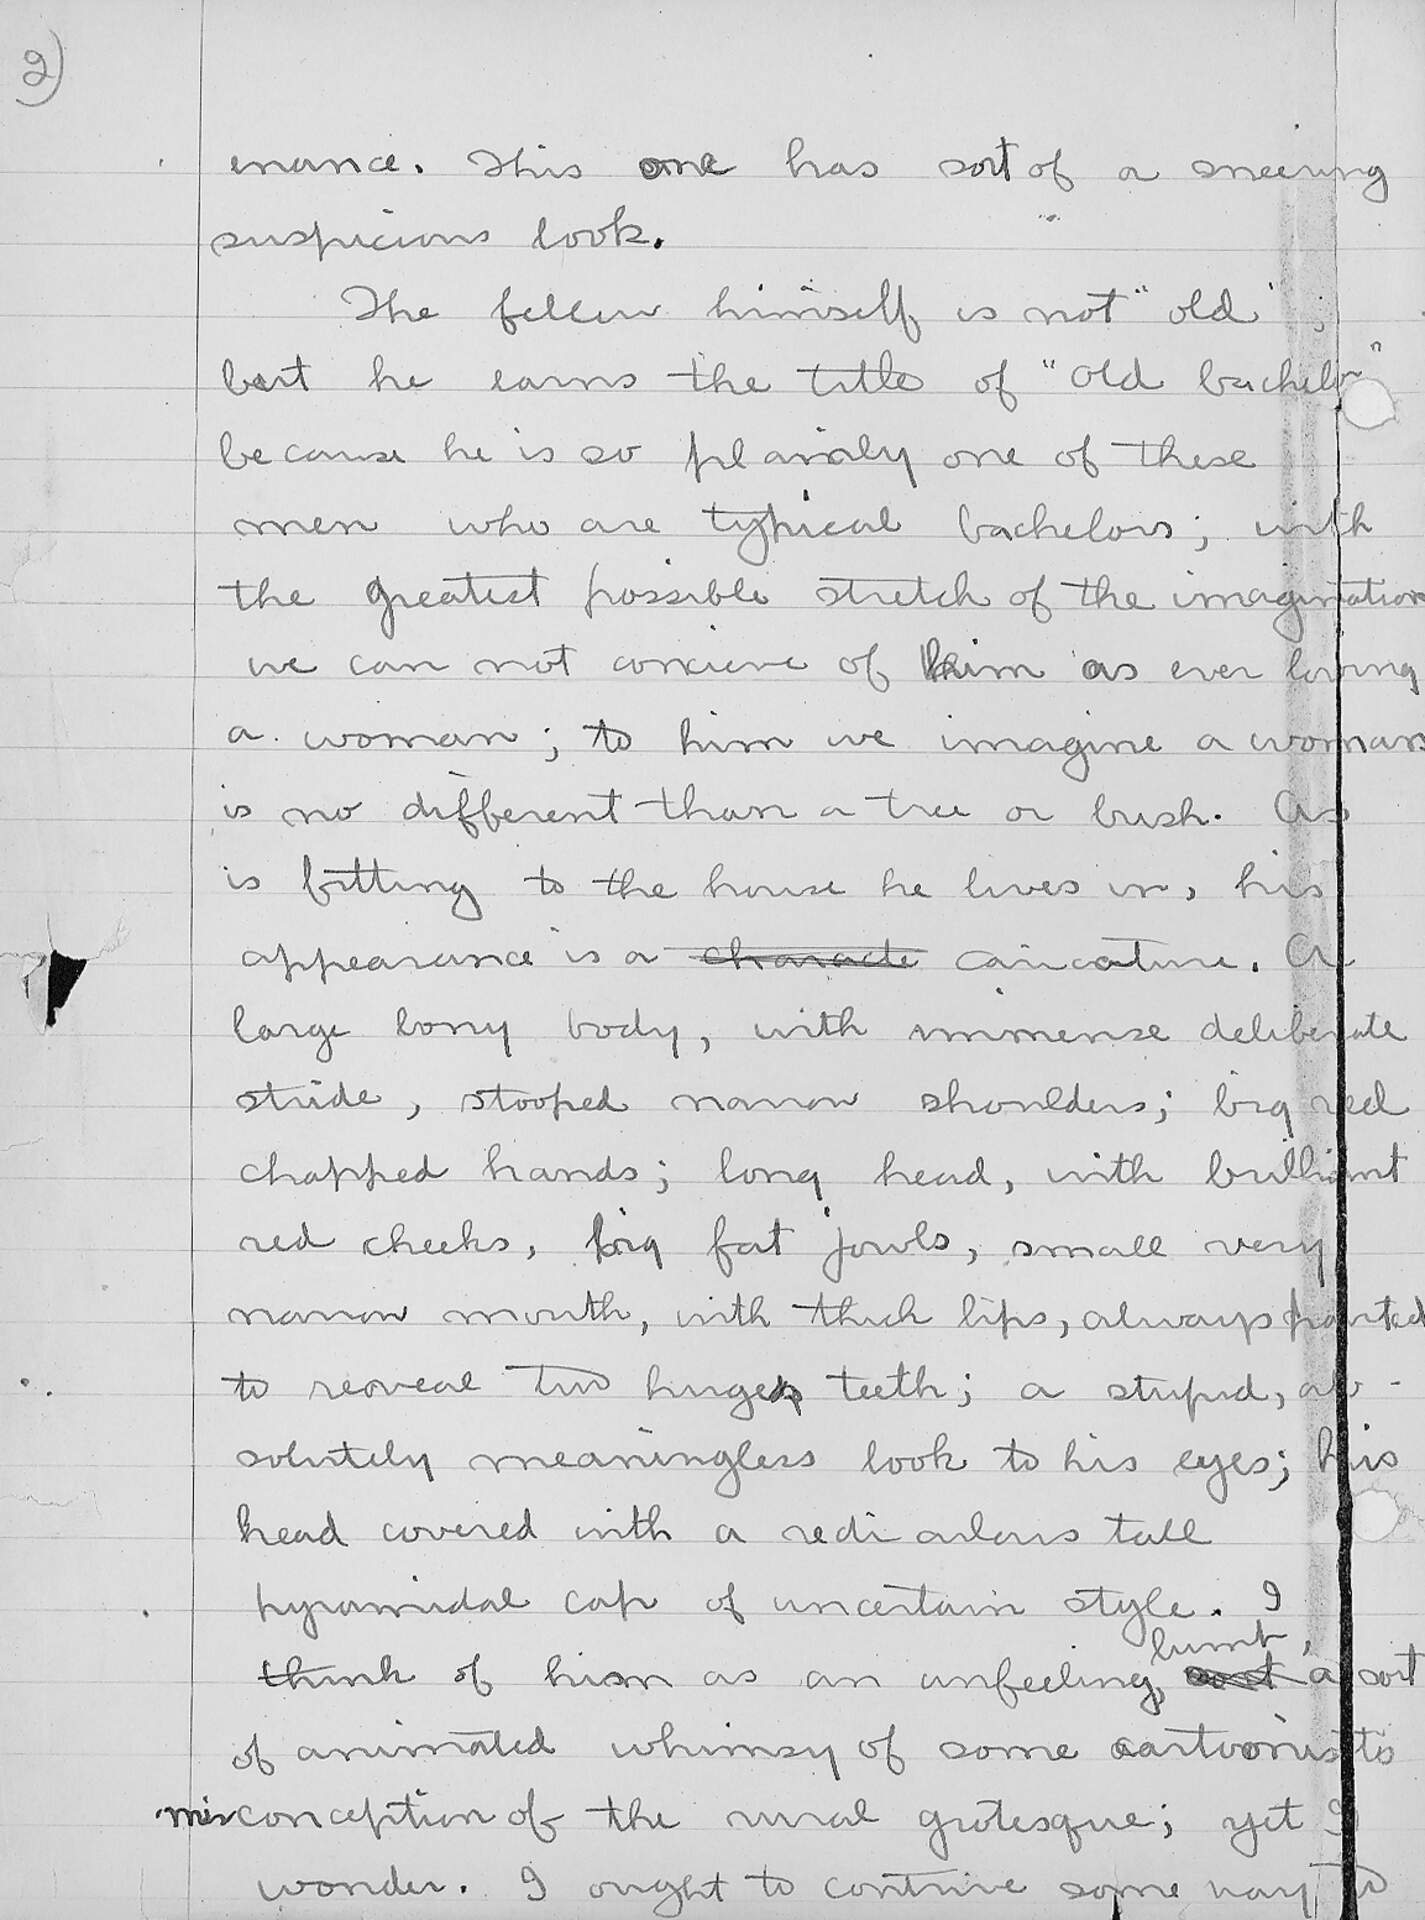 2)
enance. This one has sort of a sneering
suspicious look.
The fellow himself is not "old",
but he earns the title of "old bachelor"
because he is so plainly one of these
men who are typical bachelors; with
the greatest possible stretch of the imagination
we can not concieve of him as ever loving
a woman; to him we imagine a woman
is no different than a tree or bush. As
is fitting to the house he lives in, his
appearance is a characte caricature. A
large bony body, with immense deliberate
stride, stooped narrow shoulders; big red
chapped hands; long head, with brilliant
red cheeks, big fat jowls, small very
narrow mouth, with thick lips, always parted
to reaveal two huge teeth; a stupid, ab-
solutely meaningless look to his eyes; his
head covered with a rediculous tall
pyramidal cap of uncertain style. I
think of him as an unfeeling, sort lump, a sort
of animated whimsy of some cartoonists
misconception of the rural grotesque; yet I
wonder. I ought to contrive some way to